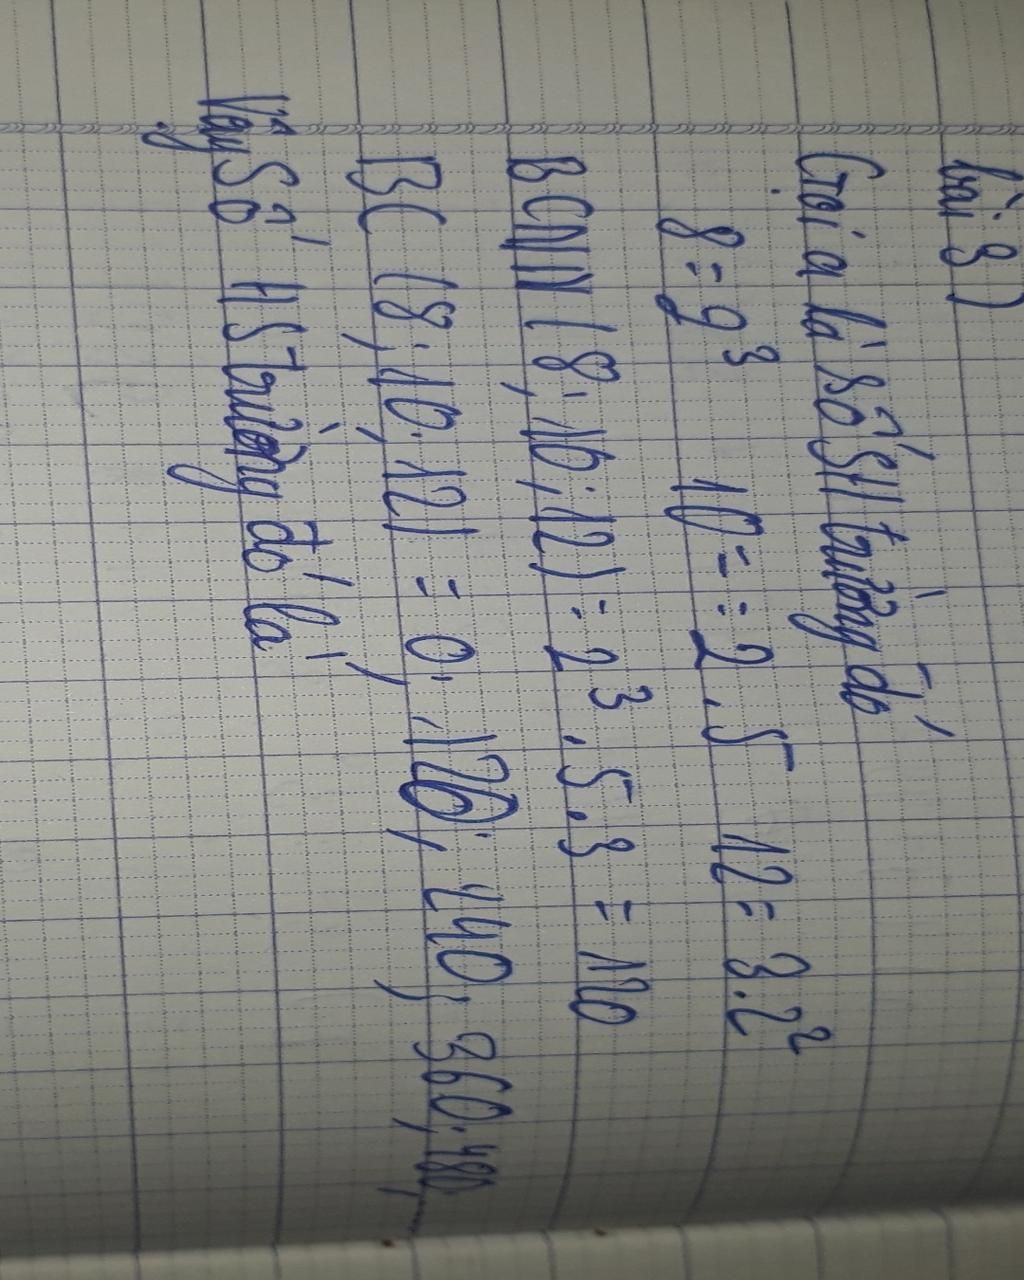 bài 3)
Gọi a là số SH trường đó
8 = 2³ 10 = = 2 . 5 12 = 3.2²
BCNN ( 8 ; 10 ; 12 ) = 2³ . 5 . 3 = 120
BC ( 8 ; 10 ; 12 ) = 0 ; 120 ; 240 ; 360 ; 480 ; ...
Vậy Số HS trường đó là